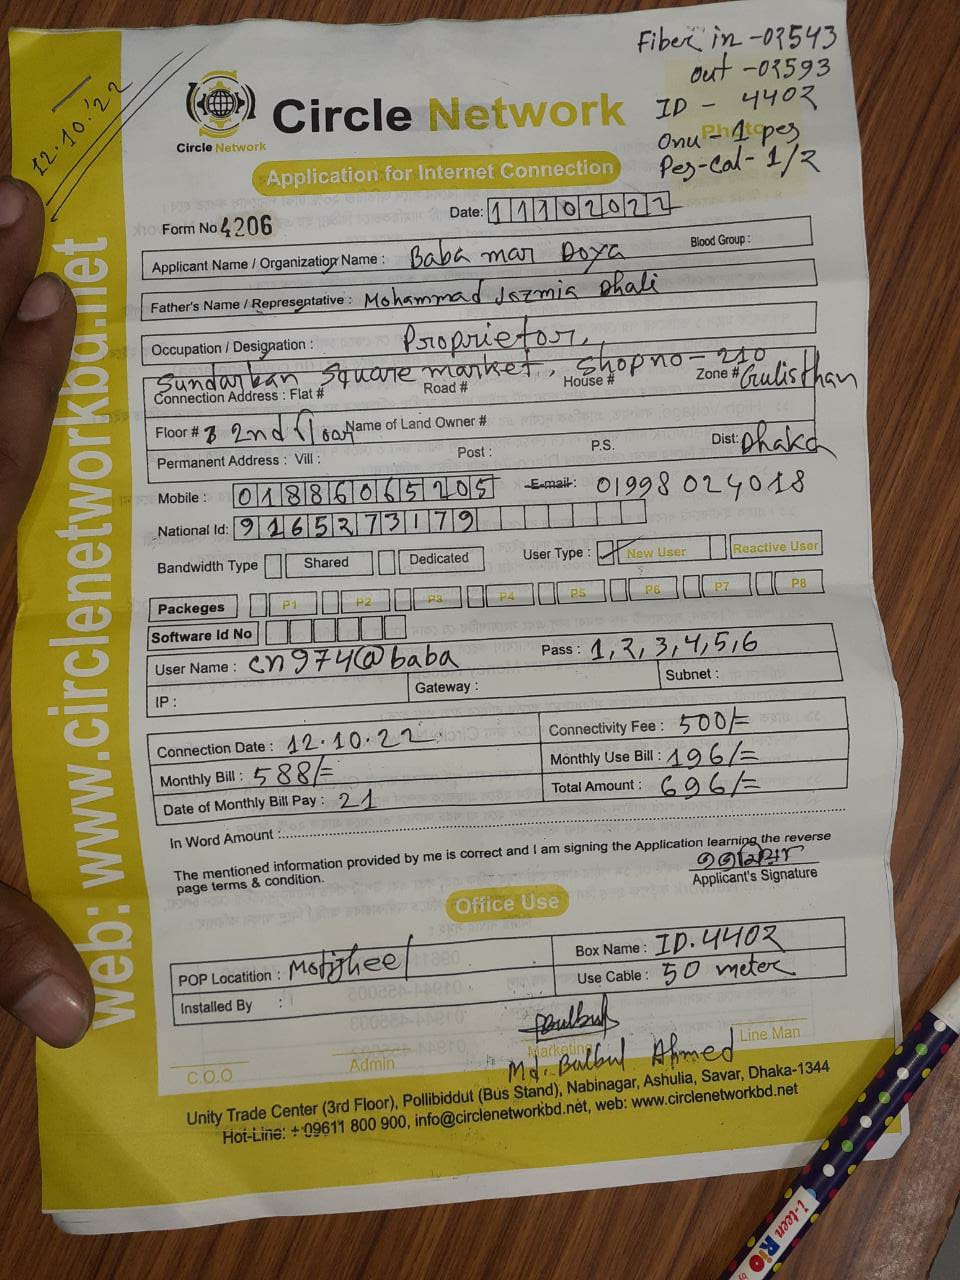 Fiber in -03543
out -03593
12.10.'22
ID - 4402
Circle Network
Circle Network
Photo
Onu - 1 pes
Pes-Cal- 1/2
Application for Internet Connection
Form No 4206
Date: 11102022
Applicant Name / Organization Name : Baba mar Doya Blood Group :
Father's Name / Representative : Mohammad Jozmia Dhali
Occupation / Designation : Proprietor,
Sundarban Square market, Shop no - 210
Connection Address : Flat # Road # House # Zone # Gulisthan
Floor # 2nd floor Name of Land Owner #
Permanent Address : Vill : Post : P.S. Dist: Dhaka
Mobile : 01886065205 E-mail: 01998024018
National Id: 9165273179
Bandwidth Type Shared Dedicated User Type : New User Reactive User
Packeges P1 P2 P3 P4 P5 P6 P7 P8
Software Id No
User Name : cn974@baba Pass : 1,2,3,4,5,6
IP : Gateway : Subnet :
Connection Date : 12.10.22 Connectivity Fee : 500/=
Monthly Bill : 588/= Monthly Use Bill : 196/=
Date of Monthly Bill Pay : 21 Total Amount : 696/=
In Word Amount :
The mentioned information provided by me is correct and I am signing the Application learning the reverse
page terms & condition.
Applicant's Signature
Office Use
POP Locatition : Motijheel Box Name : ID.4402
Installed By : Use Cable : 50 meter
Bulbul
C.O.O Admin Marketing Line Man
Md. Bulbul Ahmed
Unity Trade Center (3rd Floor), Pollibiddut (Bus Stand), Nabinagar, Ashulia, Savar, Dhaka-1344
Hot-Line: +09611 800 900, info@circlenetworkbd.net, web: www.circlenetworkbd.net
web: www.circlenetworkbd.net
i-teen Rio